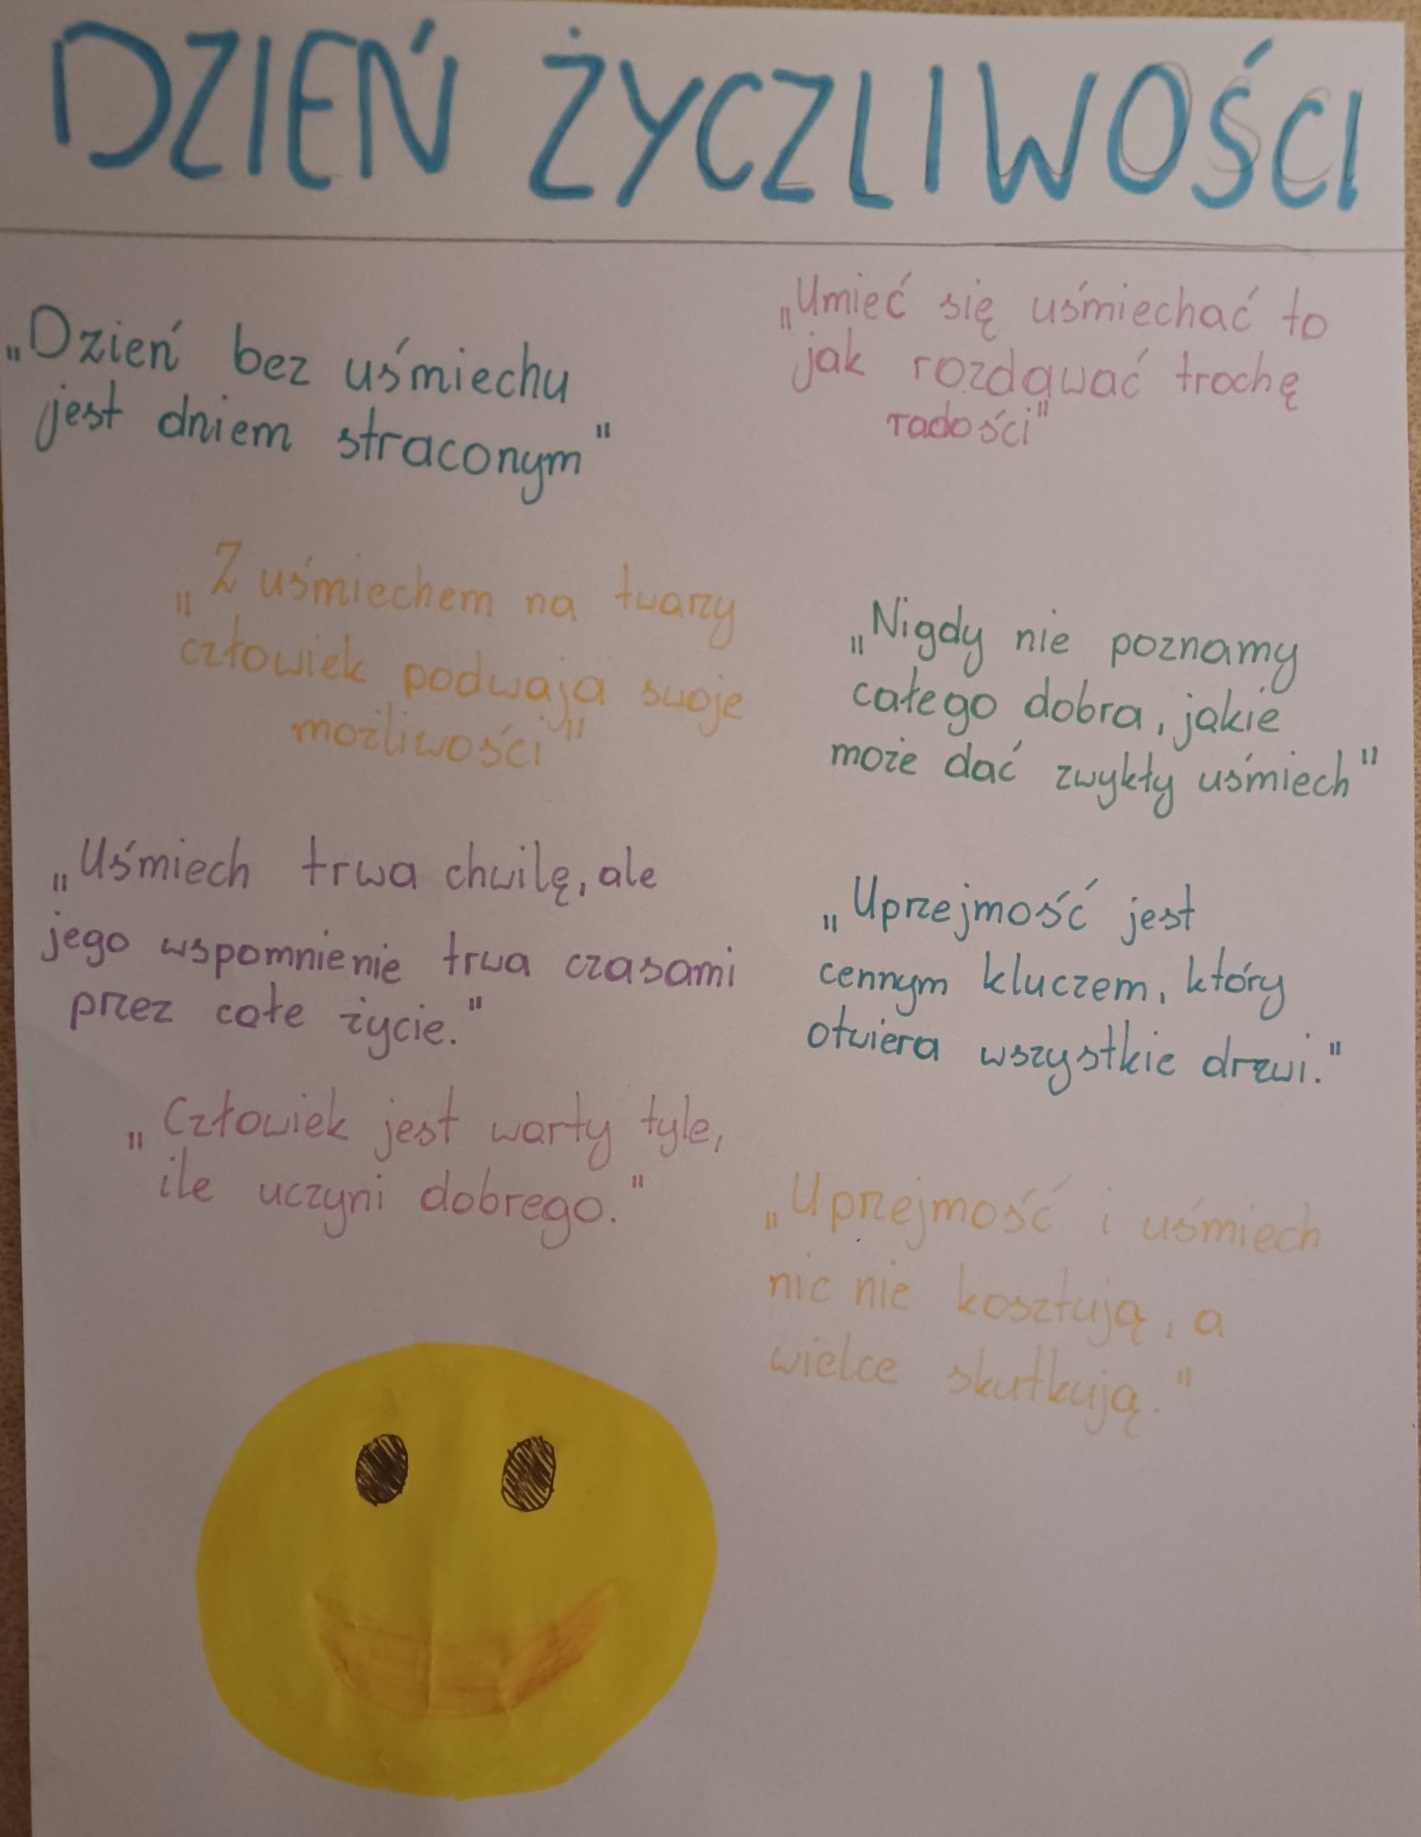 DZIEŃ ŻYCZLIWOŚCI
„Dzień bez uśmiechu
jest dniem straconym"
„Umieć się uśmiechać to
jak rozdawać trochę
radości"
„Z uśmiechem na twarzy
człowiek podwaja swoje
możliwości"
„Nigdy nie poznamy
całego dobra, jakie
może dać zwykły uśmiech"
„Uśmiech trwa chwilę, ale
jego wspomnienie trwa czasami
przez całe życie."
„Uprzejmość jest
cennym kluczem, który
otwiera wszystkie drzwi."
„Człowiek jest warty tyle,
ile uczyni dobrego."
„Uprzejmość i uśmiech
nic nie kosztują, a
wielce skutkują."